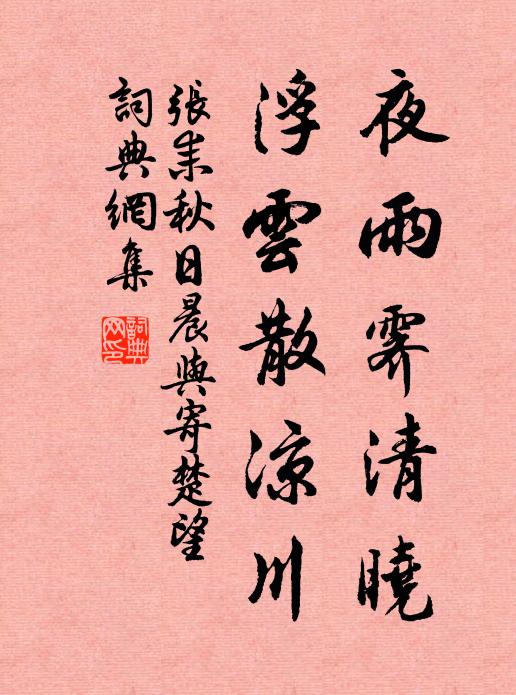 夜雨霽清曉
浮雲散涼川
張耒秋日晨與寄楚望
詞典網集
詞典網印